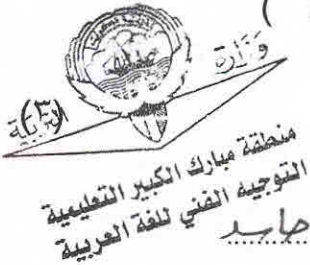 وزارة التربية
(٣)
منطقة مبارك الكبير التعليمية
التوجيه الفني للغة العربية